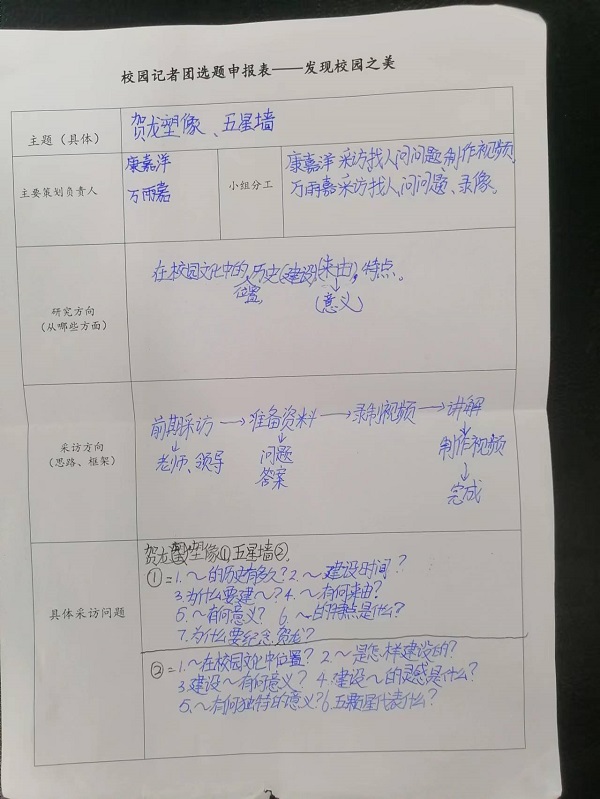 校园记者团选题申报表——发现校园之美
主题（具体）
贺龙塑像、五星墙
主要策划负责人
康嘉洋
万雨嘉
小组分工
康嘉洋采访找人问问题、制作视频
万雨嘉采访找人问问题、录像。
研究方向
（从哪些方面）
在校园文化中的历史(建设)(来由)，特点。
位置，
(意义)
采访方向
（思路、框架）
前期采访→准备资料→录制视频→讲解
老师、领导
问题
答案
制作视频
完成
具体采访问题
贺龙塑像①五星墙②
①=1.～的历史有多久？2.～建设时间？
3.为什么要建～？4.～有何来由？
5.～有何意义？6.～的特点是什么？
7.为什么要纪念贺龙？
②=1.～在校园文化中位置？2.～是怎样建设的？
3.建设～有何意义？4.建设～的灵感是什么？
5.～有何独特的意义？6.五颗星代表什么？